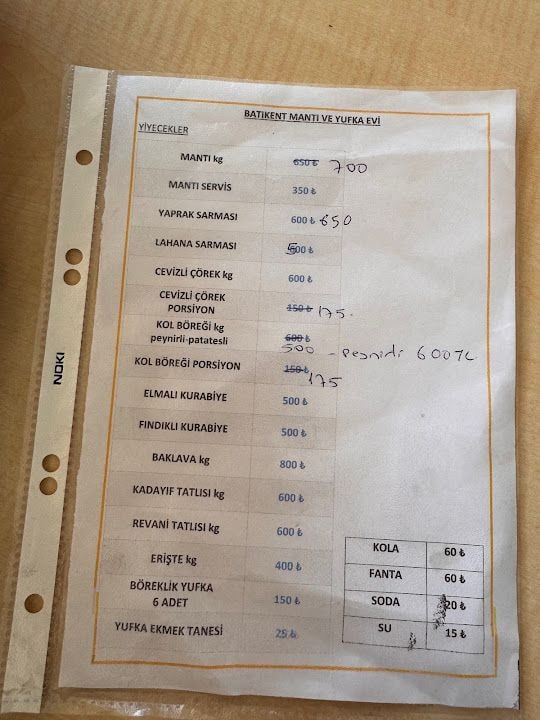 BATIKENT MANTI VE YUFKA EVİ
YİYECEKLER
MANTI kg 650 ₺ 700
MANTI SERVİS 350 ₺
YAPRAK SARMASI 600 ₺ 650
LAHANA SARMASI 500 ₺
CEVİZLİ ÇÖREK kg 600 ₺
CEVİZLİ ÇÖREK
PORSİYON 150 ₺ 175
KOL BÖREĞİ kg 600 ₺
peynirli-patatesli 500 - Peynirli 600 TL
KOL BÖREĞİ PORSİYON 150 ₺ 175
ELMALI KURABİYE 500 ₺
FINDIKLI KURABİYE 500 ₺
BAKLAVA kg 800 ₺
KADAYIF TATLISI kg 600 ₺
REVANİ TATLISI kg 600 ₺
ERİŞTE kg 400 ₺
BÖREKLİK YUFKA
6 ADET 150 ₺
YUFKA EKMEK TANESİ 25 ₺
KOLA 60 ₺
FANTA 60 ₺
SODA 20 ₺
SU 15 ₺
NOKI